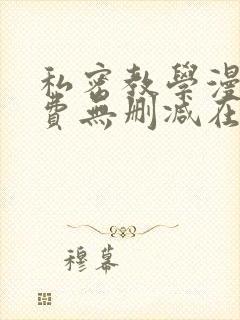 私密教學漫
費無刪減在
穆幕